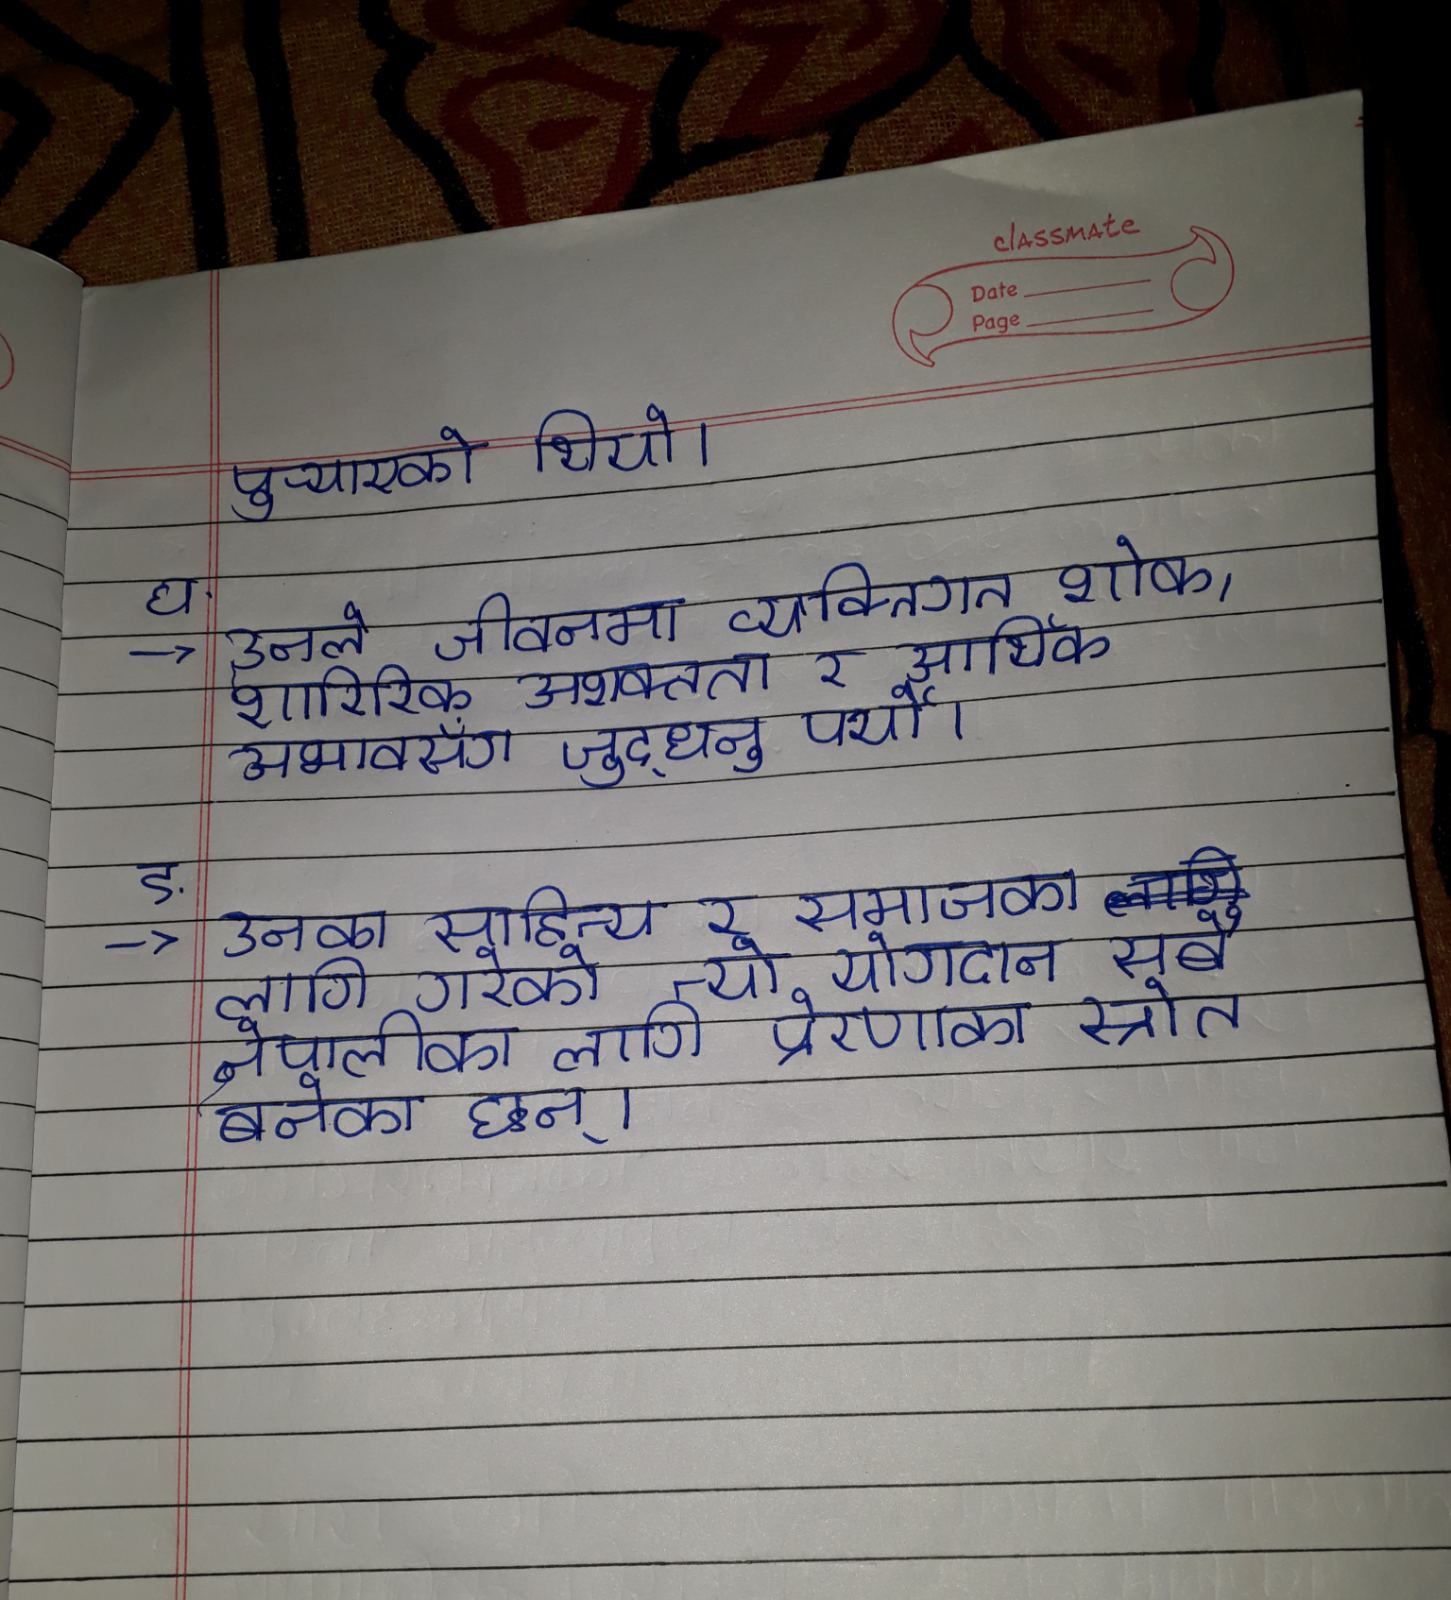 classmate
Date
Page
पुऱ्याएको थियो।
घ.
→ उनले जीवनमा व्यक्तिगत शोक,
शारिरिक अशक्तता र आर्थिक
अभावसँग जुद्धनु पर्यो।
ङ.
→ उनका साहित्य र समाजका
लागि गरेको त्यो योगदान सबै
नेपालीका लागि प्रेरणाका स्त्रोत
बनेका छन्।